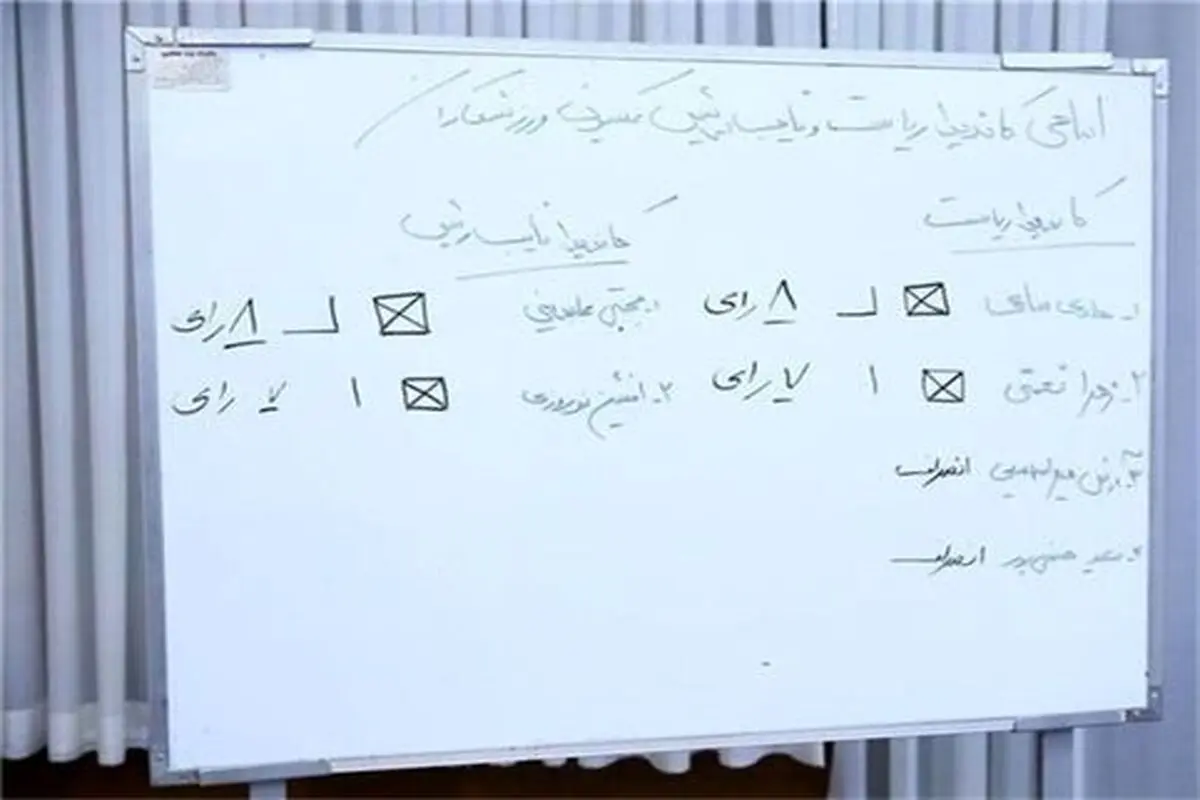 اسامی کاندیدا ریاست و نایب رئیس کمیسیون ورزشکاران
کاندیدا ریاست
۱. هادی ساعی ۸ رای
۲. زهرا نعمتی ۷ رای
۳. آرش میراسماعیلی انصراف
۴. سعید حسنی‌پور انصراف
کاندیدا نایب رئیس
۱. مجتبی عابدینی ۸ رای
۲. افشین نوروزی ۷ رای